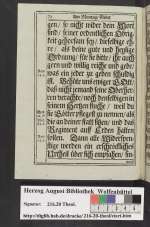 Am Montag Abend
gen/ so nicht wider dein Wort
sind/ seiner ordentlichen Obrig-
keit gehorsam sey/ dieselbige eh-
re/ als deine gute und heylige
Ordnung/ für sie bitte/ ihr auch
gern und willig reiche und gebe/
was ein jeder zu geben schuldig
ist. Behüte uns
daß nicht jemand seine Oberher-
ren verachte/ noch denselbigen in
seinem Hertzen fluche/ weil du
sie Götter pflegest zu nennen/ als
die an deiner statt sitzen/ und das
Regiment auff Erden halten
sollen. Dann alle Widerspens-
tige werden ein erschreckliches
Urtheil über sich empfahen/
Herzog August Bibliothek Wolfenbüttel
Signatur: 216.20 Theol.
http://diglib.hab.de/drucke/216-20-theol/start.htm